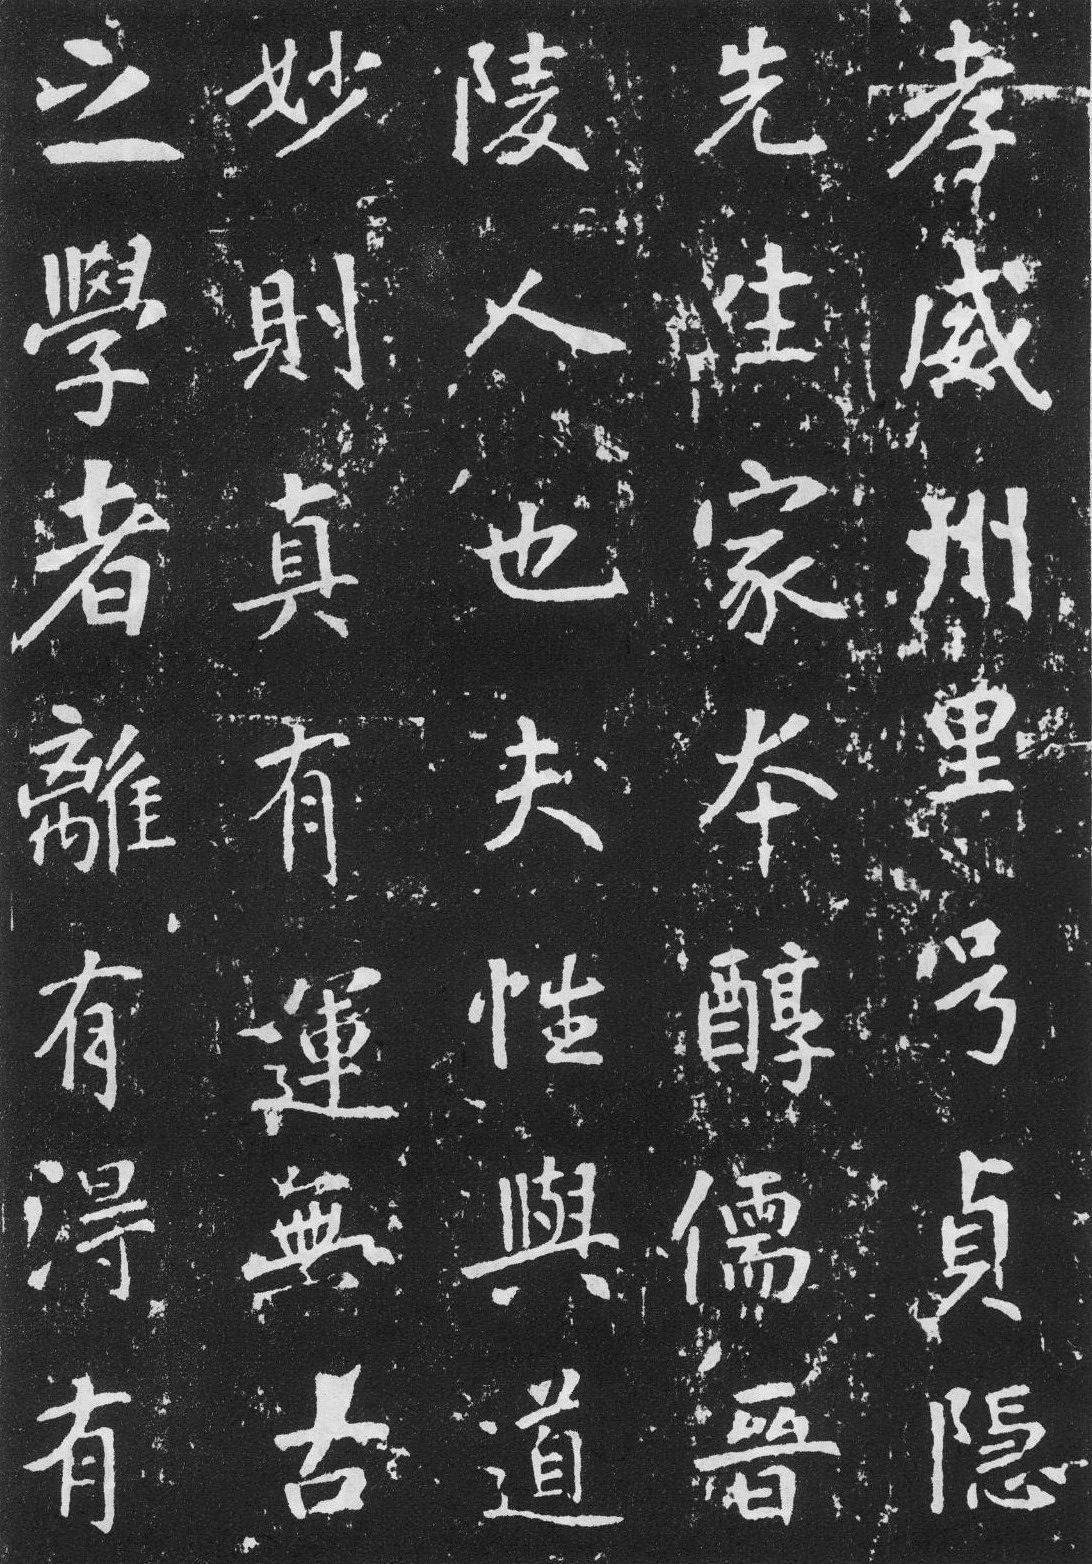 孝威州里号貞隱
先生家本醇儒晉
陵人也夫性與道
妙則真有運無古
之學者離有得有